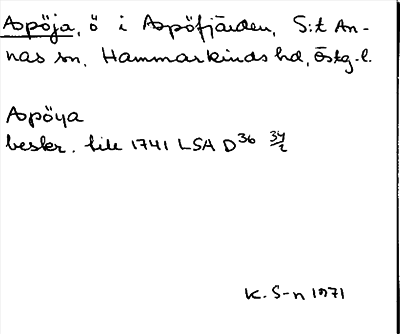 Aspöja, ö i Aspöfjärden, S:t An-
nas sn, Hammarkinds hd, Östg.l.
Aspöya
beskr. till 1741 LSA D36 34/2
K. S-n 1971